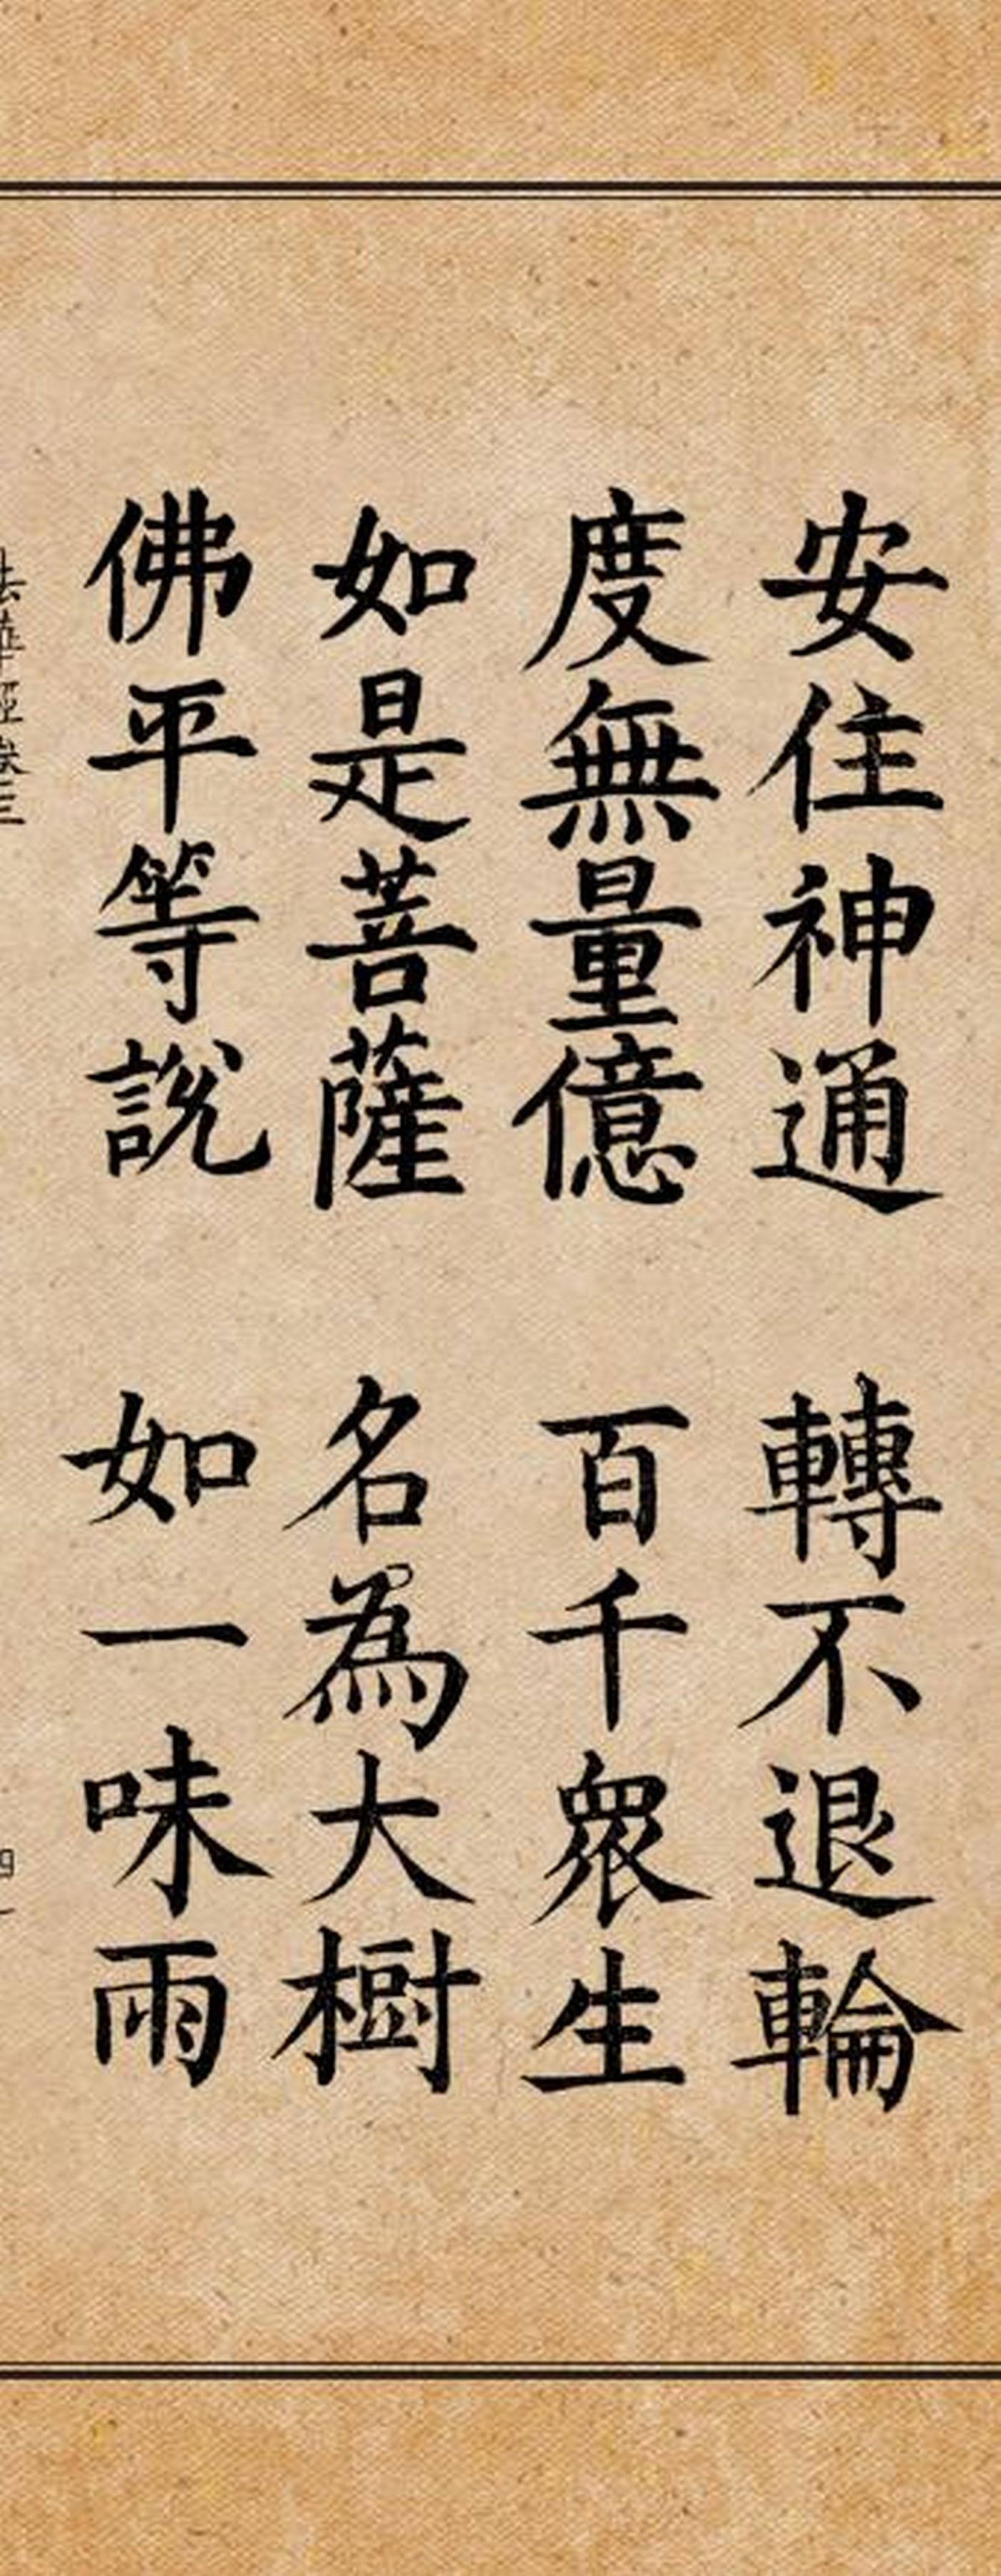 安住神通 轉不退輪
度無量億 百千眾生
如是菩薩 名為大樹
佛平等說 如一味雨
法華經卷三